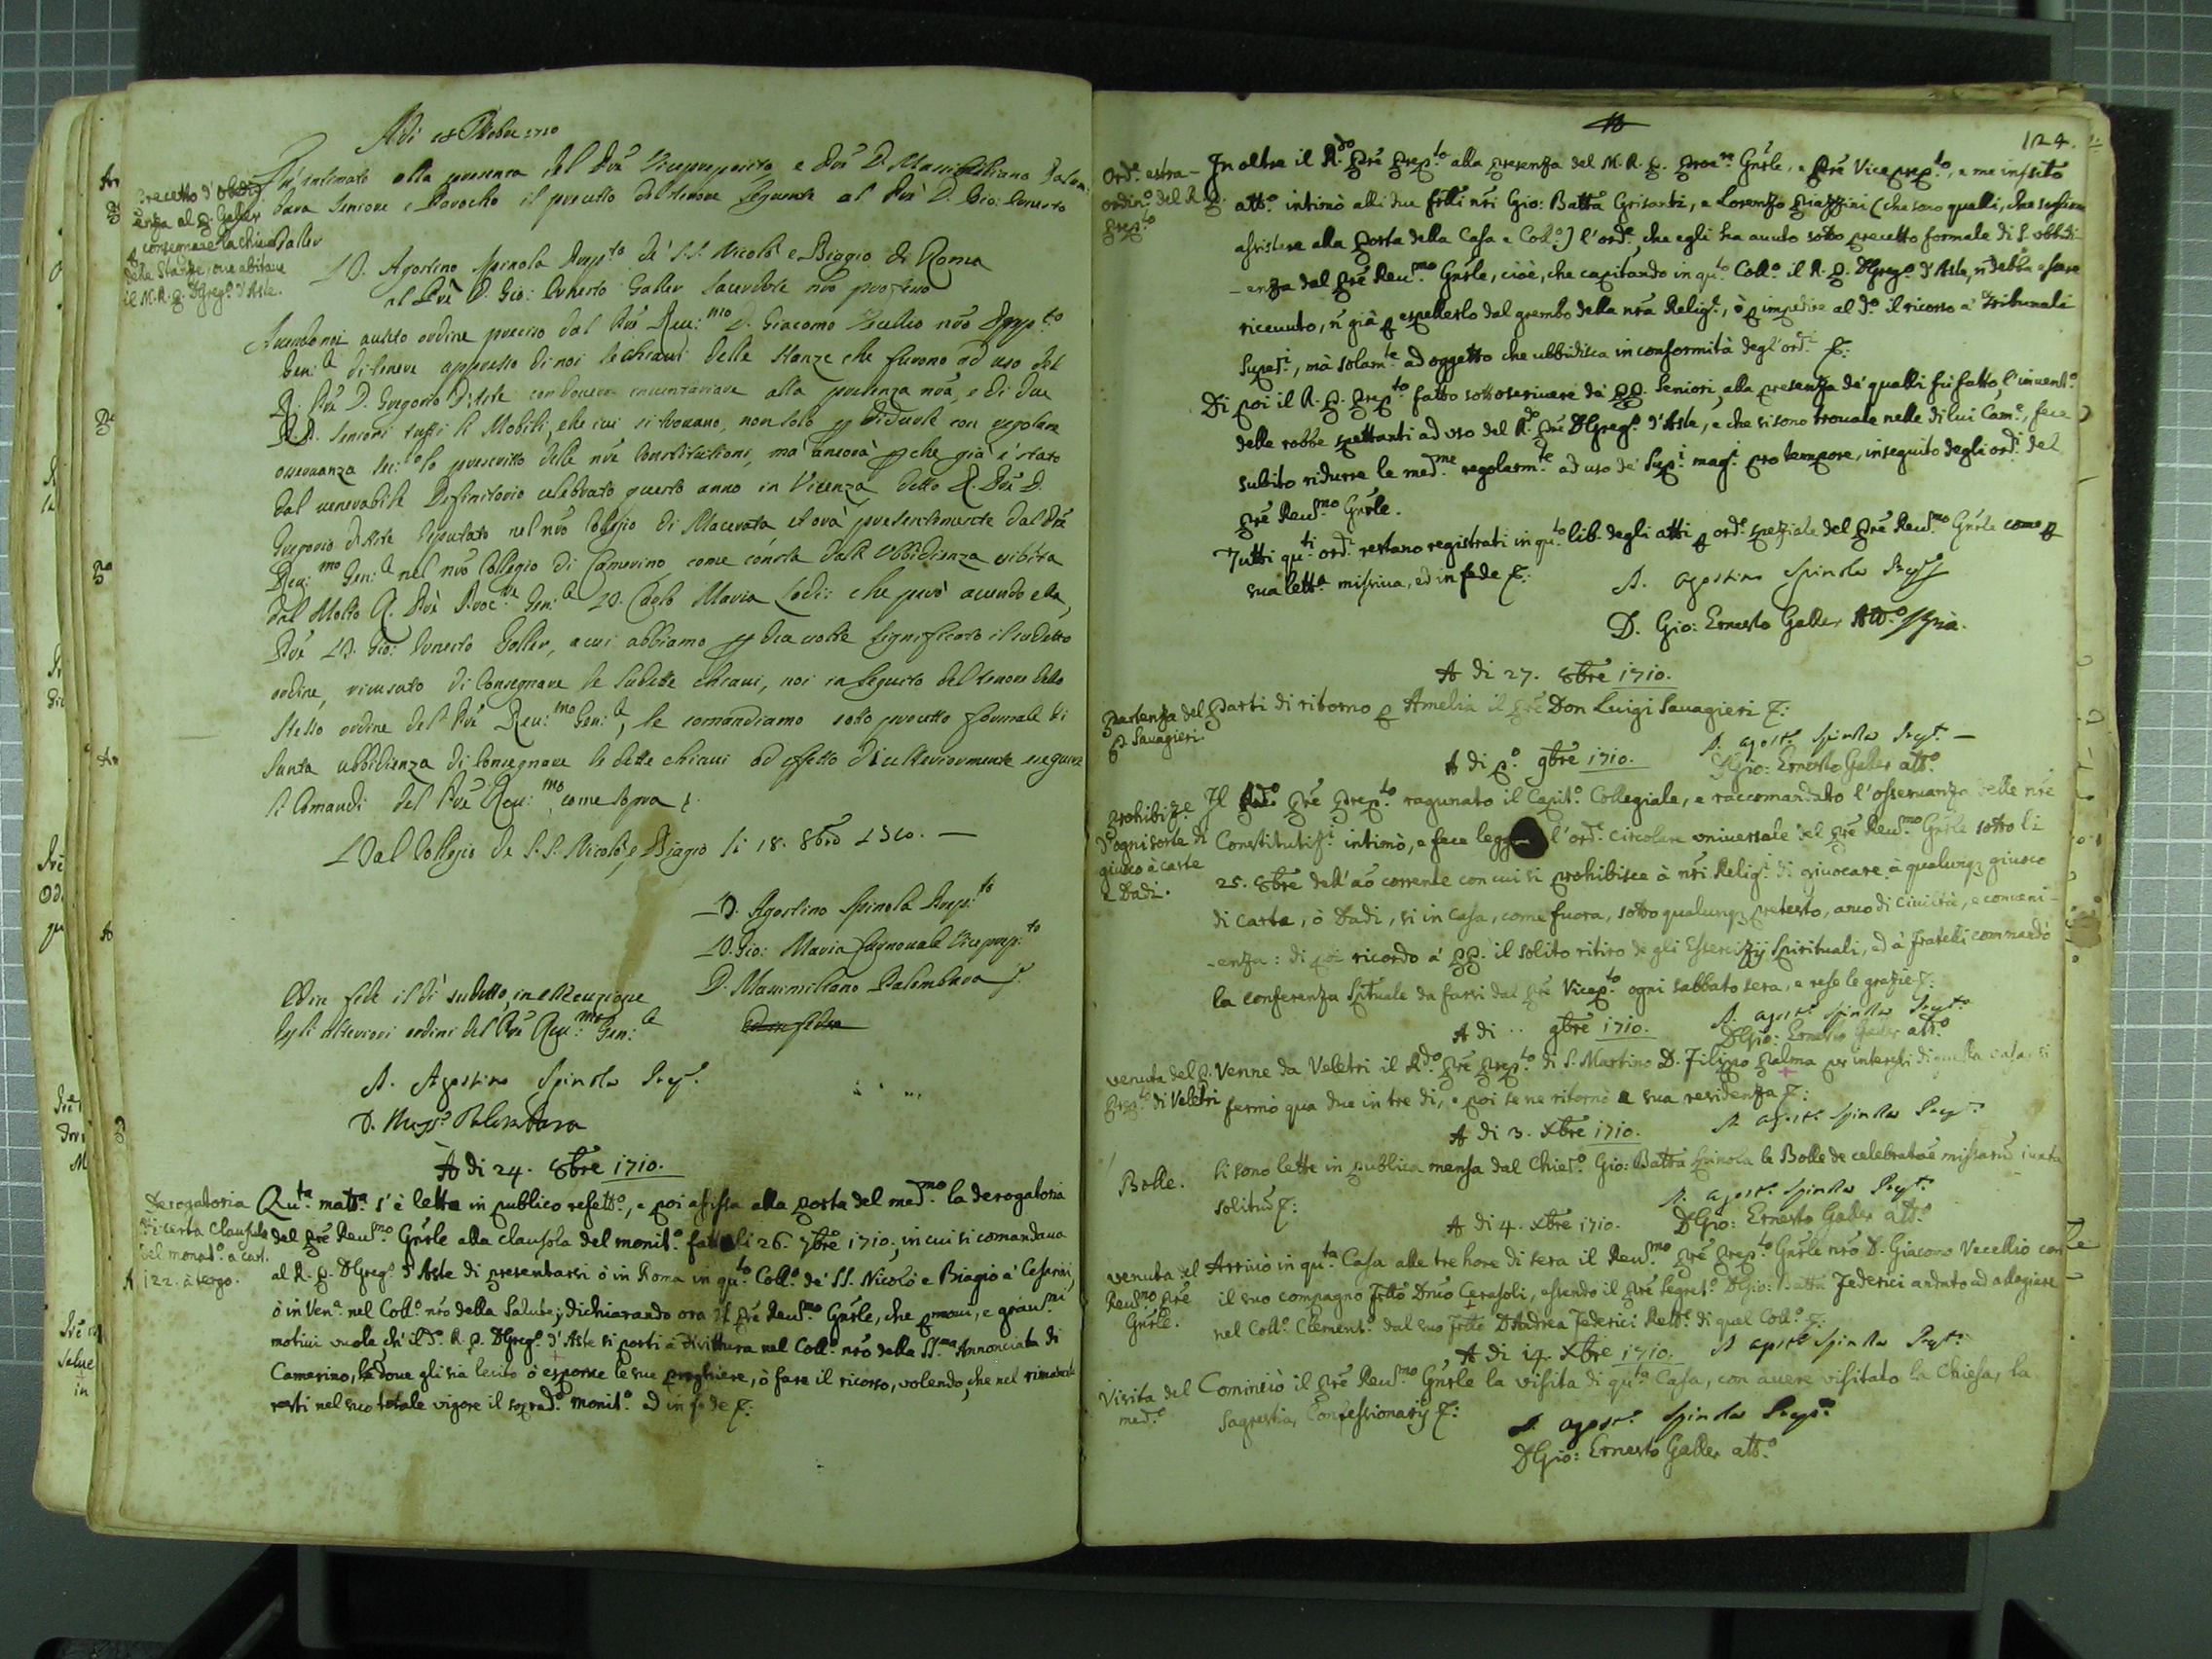 Adi 18 Ottobre 1710
Precetto d'obedi-
enza al P. Galler
consegnare la chiave
delle Stanze, ove abitava
il M.R.P. D Greg.o d'Aste.
Fù intimato alla presenza del Prē Vicepreposito e Prē D. Massimiliano Palom-
bara seniore e Parocho il precetto del tenore seguente al Prē D. Gio: Ernesto
Galler
D. Agostino Spinola Prep.to de' S.S. Nicolò e Biagio di Roma
al Prē D. Gio: Ernesto Galler sacerdote nrō professo
Avendo noi avuto ordine preciso dal Prē Reu:mo D. Giacomo Vecellio nrō Prep.to
Gen:le di tenere appresso di noi le chiavi delle stanze che furono ad uso del
R. Prē D. Gregorio d'Aste con dovere inventariare alla presenza nrā, e di due
P.P. seniori tutti li Mobili, che ivi si trovano, non solo p ridurle con regolare
osservanza sec:do lo prescritto delle nrē Constitutioni, mà ancora p che già è stato
dal venerabile Definitorio celebrato questo anno in Vicenza detto R. Prē D.
Gregorio d'Aste deputato nel nrō Collegio di Macerata et orà presentemente dal Prē
Reu:mo Gen:le nel nrō Collegio di Camerino come consta dall Ubbidienza esibita
dal Molto R. Prē Proc.re Gen:le D. Carlo Maria Lodi: che però avendo ella,
Prē D. Gio: Ernesto Galler, a cui abbiamo p due volte significato il sudetto
ordine, ricusato di consegnare le sudette chiavi, noi in seguito del tenore dello
stesso ordine del Prē Reu:mo Gen:le, le comandiamo sotto precetto formale di
santa ubbidienza di consegnare le dette chiavi ad effetto di ulteriormente eseguire
li comandi del Prē Reu:mo come sopra
Dal Collegio de S.S. Nicolò, e Biagio li 18. 8bre 1710. —
D. Agostino Spinola Prep.to
D. Gio: Maria Viceprep.to
D. Massimiliano Palombara
Ed in fede il dì sudetto in essecuzione
degli ulteriori ordini del Prē Reu:mo Gen:le
D. Agostino Spinola Prep.
D. Mass.o Palombara
A di 24. 8bre 1710.
Derogatoria
di certa clausula
del monit.o a cart.
122. à tergo.
Qu.ta matt.a s'è letta in publico refett.o, e poi affissa alla porta del med.mo la derogatoria
del Prē Reu.mo Gn̄rle alla clausola del monit.o fatto li 26. 7bre 1710., in cui si comandava
al R. P. D Greg.o d'Aste di presentarsi ò in Roma in qu.to Coll.o de' SS. Nicolò e Biagio a' Cesarini
ò in Ven.a nel Coll.o nrō della Salute; dichiarando ora il Prē Reu.mo Gn̄rle, che p nuovi, e grau.mi
motivi vuole ch'il d.o R. P. D Greg.o d'Aste si porti a drittura nel Coll.o nrō della SS.ma Annonciata di
Camerino, là dove gli sia lecito ò esporre le sue preghiere, ò fare il ricorso, volendo, che nel rimanente
resti nel suo totale vigore il soprad.o monit.o ed in fede
124.
Ord.e estra-
ordin.o del R. P.
Prep.to
In oltre il R.do Prē Prep.to alla presenza del M. R. P. Proc.re Gn̄rle, e Prē Viceprep.to, e me infr̄itto
att.o intimò alli due frlli nrī Gio: Batt̄a Grisanti, e Lorenzo Piazzini (che sono quelli, che sogliono
assistere alla porta della Casa e Coll.o) l'ord.e, che egli ha avuto sotto precetto formale di S. ubbidi-
-enza dal Prē Reu.mo Gn̄rle, cioè, che capitando in qu.to Coll.o il R. P. D Greg.o d'Aste, n̄ debba essere
ricevuto, n̄ già p espellerlo dal grembo della nrā Relig.e, ò p impedire al d.o il ricorso a' Tribunali
Super.i, mà solam.te ad oggetto che ubbidisca in conformità degl'ord.i
Di poi il R. P. Prep.to fatto sottoscrivere da' PP. Seniori, alla presenza de' quali fù fatto l'invent.o
delle robbe spettanti ad uso del R.do Prē D Greg.o d'Aste, e che si sono trovate nelle di lui Cam.e, fece
subito ridurre le med.me regolarm.te ad uso de' Sup.i mag.i pro tempore, in seguito degli ord.i del
Prē Reu.mo Gn̄rle.
Tutti qu.ti ord.i restano registrati in qu.to lib. degli atti p ord.e speziale del Prē Reu.mo Gn̄rle come p
sua lett.a missiva, ed in fede
D. Agostino Spinola Prep.
D. Gio: Ernesto Galler Att.o
A di 27. 8bre 1710.
Partenza del
P. Savagieri.
Parti di ritorno p Amelia il Prē Don Luigi Savagieri
D. Agost.o Spinola Prep.to —
D Gio: Ernesto Galler att.o
A di p.o 9bre 1710.
Prohibiz.e
d'ogni sorte di
giuoco à carte
e Dadi.
Il Rdo Prē Prep.to ragunato il Capit.o Collegiale, e raccomandato l'osservanza delle nrē
Constituti.i intimò, e fece leggere l'ord.e circolare universale del Prē Reu.mo Gn̄rle sotto li
25. 8bre dell'ān̄o corrente con cui si prohibisce à nrī Relig.i di giuocare à qualunq; giuoco
di carte, ò Dadi, sì in Casa, come fuora, sotto qualunq; pretesto, anco di civiltà, e conveni-
-enza: di poi ricordò a' PP. il solito ritiro de gli Essercizij Spirituali, ed à fratelli commandò
la conferenza Spituale da farsi dal Prē Vicep.to ogni sabbato sera, e rese le grazie
D. Agost.o Spinola Prep.to
D Gio: Ernesto Galler att.o
A di .. 9bre 1710.
Venuta del P.
Prep.to di Veletri
Venne da Veletri il R.do Prē Prep.to di S. Martino D. Filippo Palma per interessi di questa casa, si
fermò qua due in tre dì, e poi se ne ritornò a sua residenza
D. Agost.o Spinola Prep.to
A di 3. Xbre 1710.
Bolle.
Si sono lette in publica mensa dal Chier.o Gio: Batt̄a Spinola le Bolle de celebratōe missarū iuxta
solitū
D. Agost.o Spinola Prep.to
D Gio: Ernesto Galler att.o
A di 4. Xbre 1710.
Venuta del
Reu.mo Prē
Gn̄rle.
Arrivò in qu.ta Casa alle tre hore di sera il Reu.mo Prē Prep.to Gn̄rle nrō D. Giacomo Vecellio con
il suo compagno frllo Dn̄ico Cerasoli, essendo il Prē Segret.o D Gio: Batt̄a Federici andato ad allogiare
nel Coll.o Clement.o dal suo frllo D Andrea Federici Rett.e di quel Coll.o
D. Agost.o Spinola Prep.to
A di 14. Xbre 1710.
Visita del
med.o
Cominciò il Prē Reu.mo Gn̄rle la visita di qu.ta Casa, con avere visitato la Chiesa, la
Sagrestia, Confessionarij
D. Agost.o Spinola Prep.to
D Gio: Ernesto Galler att.o